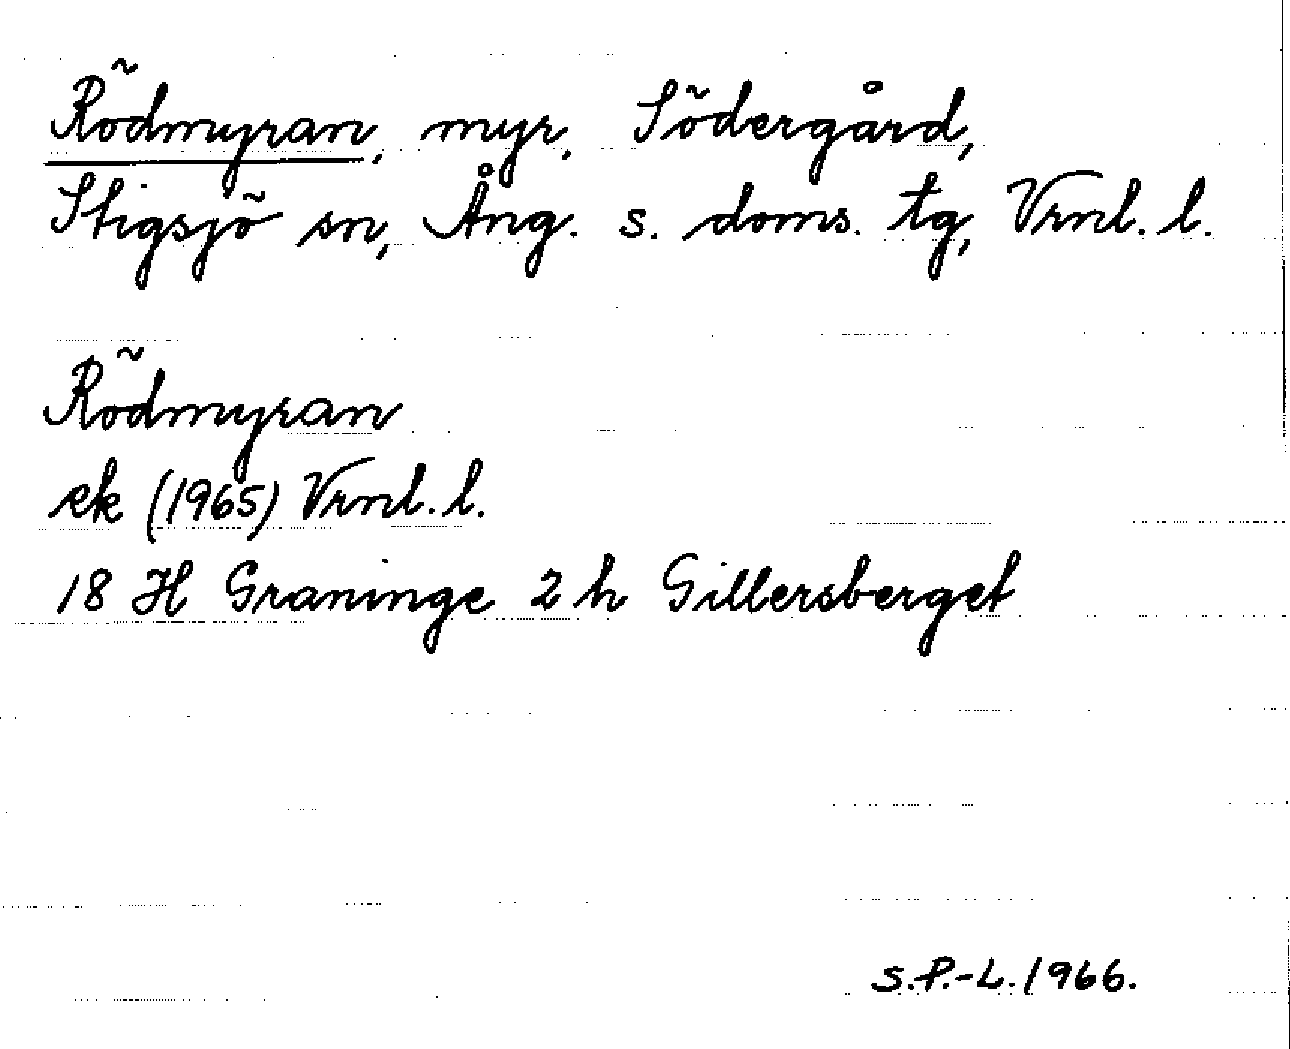 Rödmyran, myr, Södergård,
Stigsjö sn, Ång. s. doms. tg, Vrnl. l.
Rödmyran
ek (1965) Vrnl. l.
18 H Graninge 2 h Gillersberget
S.P.-L. 1966.